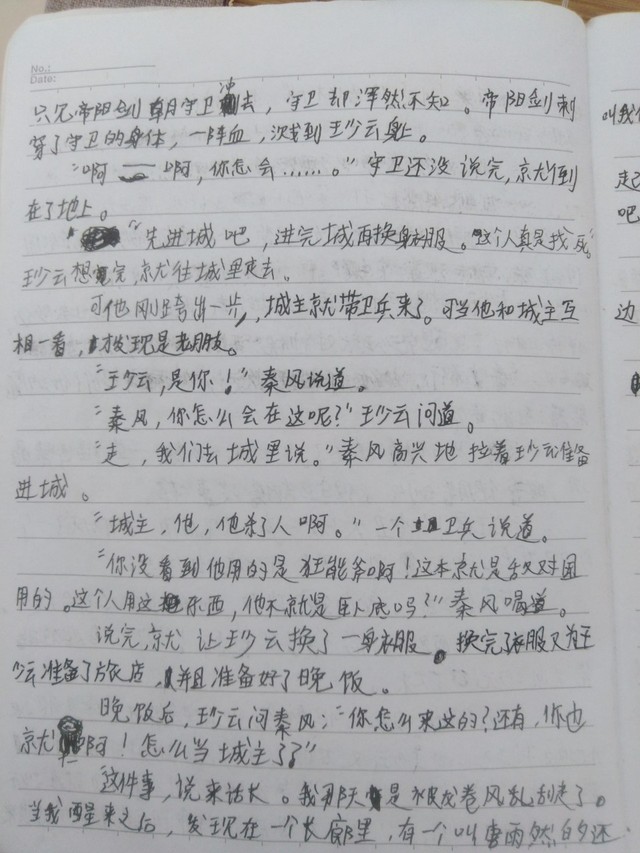 No.:
Date:
只见帝阳剑朝守卫冲去，守卫却浑然不知。帝阳剑刺
穿了守卫的身体，一阵血，溅到王少云身上。
“啊——啊，你怎会……。”守卫还没说完，就倒
在了地上。
“先进城吧，进完城再换身衣服。这个人真是找死。”
王少云想完，就往城里走去。
可他刚跨出一步，城主就带卫兵来了。可当他和城主互
相一看，才发现是老朋友。
“王少云，是你！”秦风说道。
“秦风，你怎么会在这呢？”王少云问道。
“走，我们去城里说。”秦风高兴地拉着王少云准备
进城。
“城主，他，他杀了人啊。”一个卫兵说道。
“你没看到他用的是狂能斧啊！这本就是敌对国
用的。这个人用这东西，他不就是卧底吗？”秦风喝道。
说完，就让王少云换了一身衣服。换完了衣服又为王
少云准备了旅店，并且准备好了晚饭。
晚饭后，王少云问秦风：“你怎么来这的？还有，你也
就 啊！怎么当城主了？”
“这件事，说来话长。我那天是被龙卷风乱刮走了。
当我醒来之后，发现在一个长廊里，有一个叫 雨然的还
叫我
起
吧
边